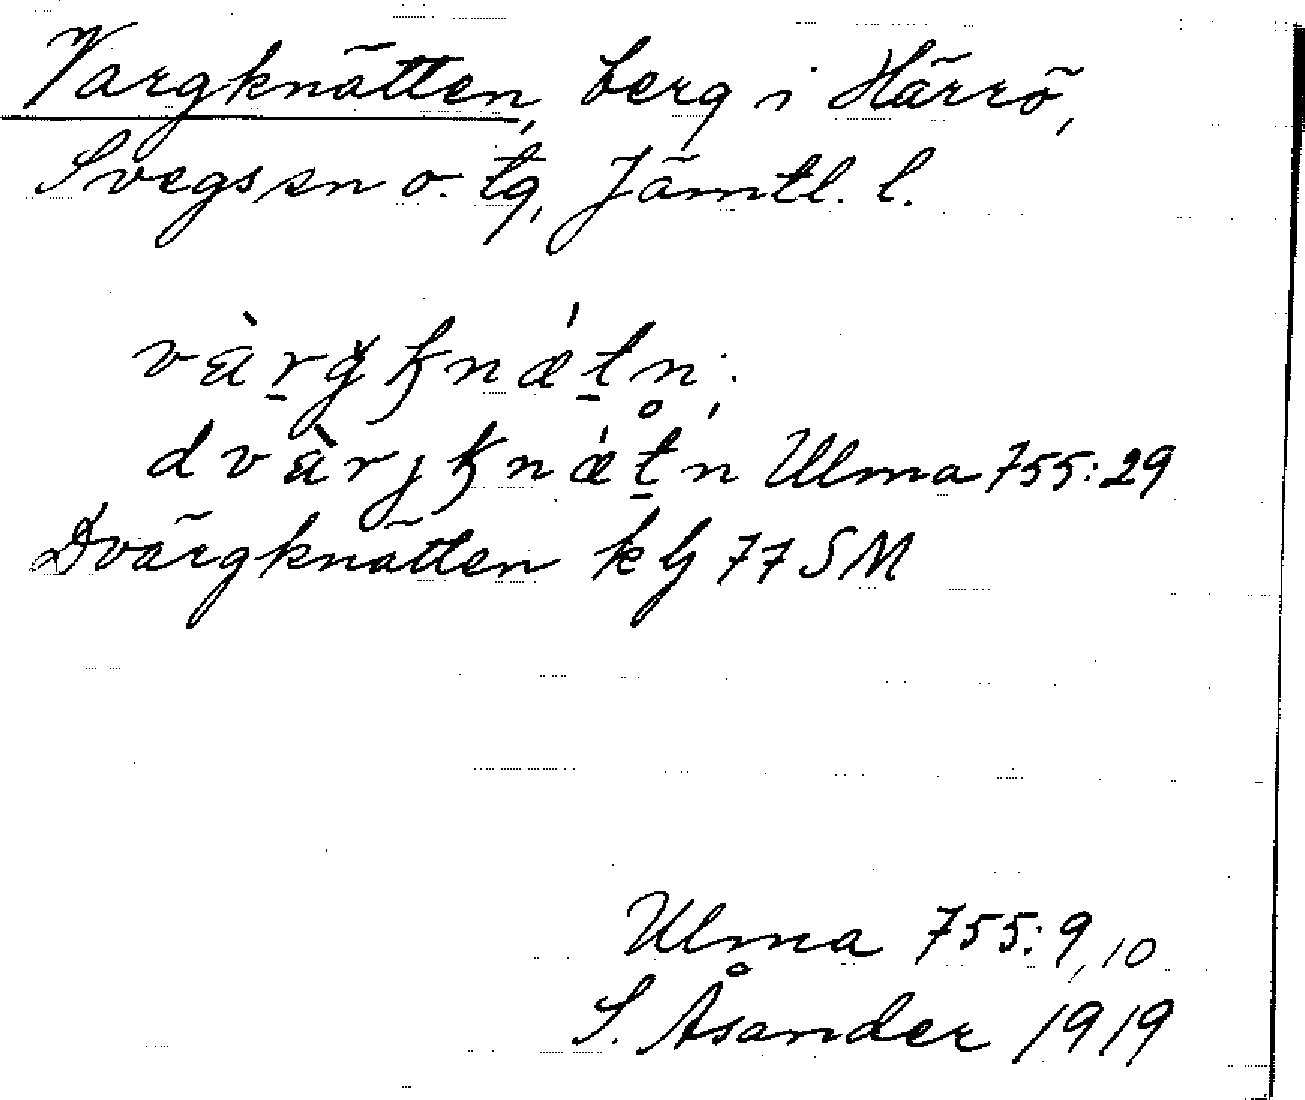 Vargknätten, berg i Härrö,
Svegs sn o. tg, Jämtl. l.
vàrgknǽtn̥;
dvàrjknǽtn Ulma 755:29
Dvärgknätten kbj 77 SM
Ulma 755:9,10
S. Åsander 1919